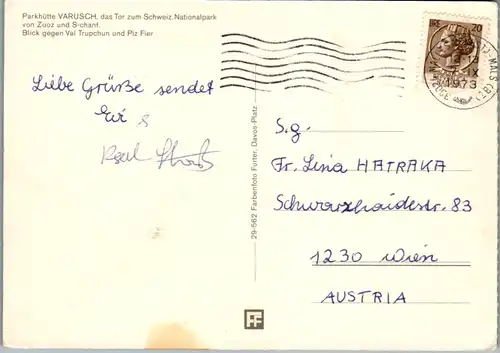 Parkhütte VARUSCH, das Tor zum Schweiz. Nationalpark
von Zuoz und S-chanf.
Blick gegen Val Trupchun und Piz Fier
Liebe Grüße sendet
Evi &
29-562 Farbenfoto Furter, Davos-Platz
20
IX
1973
S.g.
Fr. Lina HATRAKA
Schwarzhaidestr. 83
1230 Wien
AUSTRIA
FF